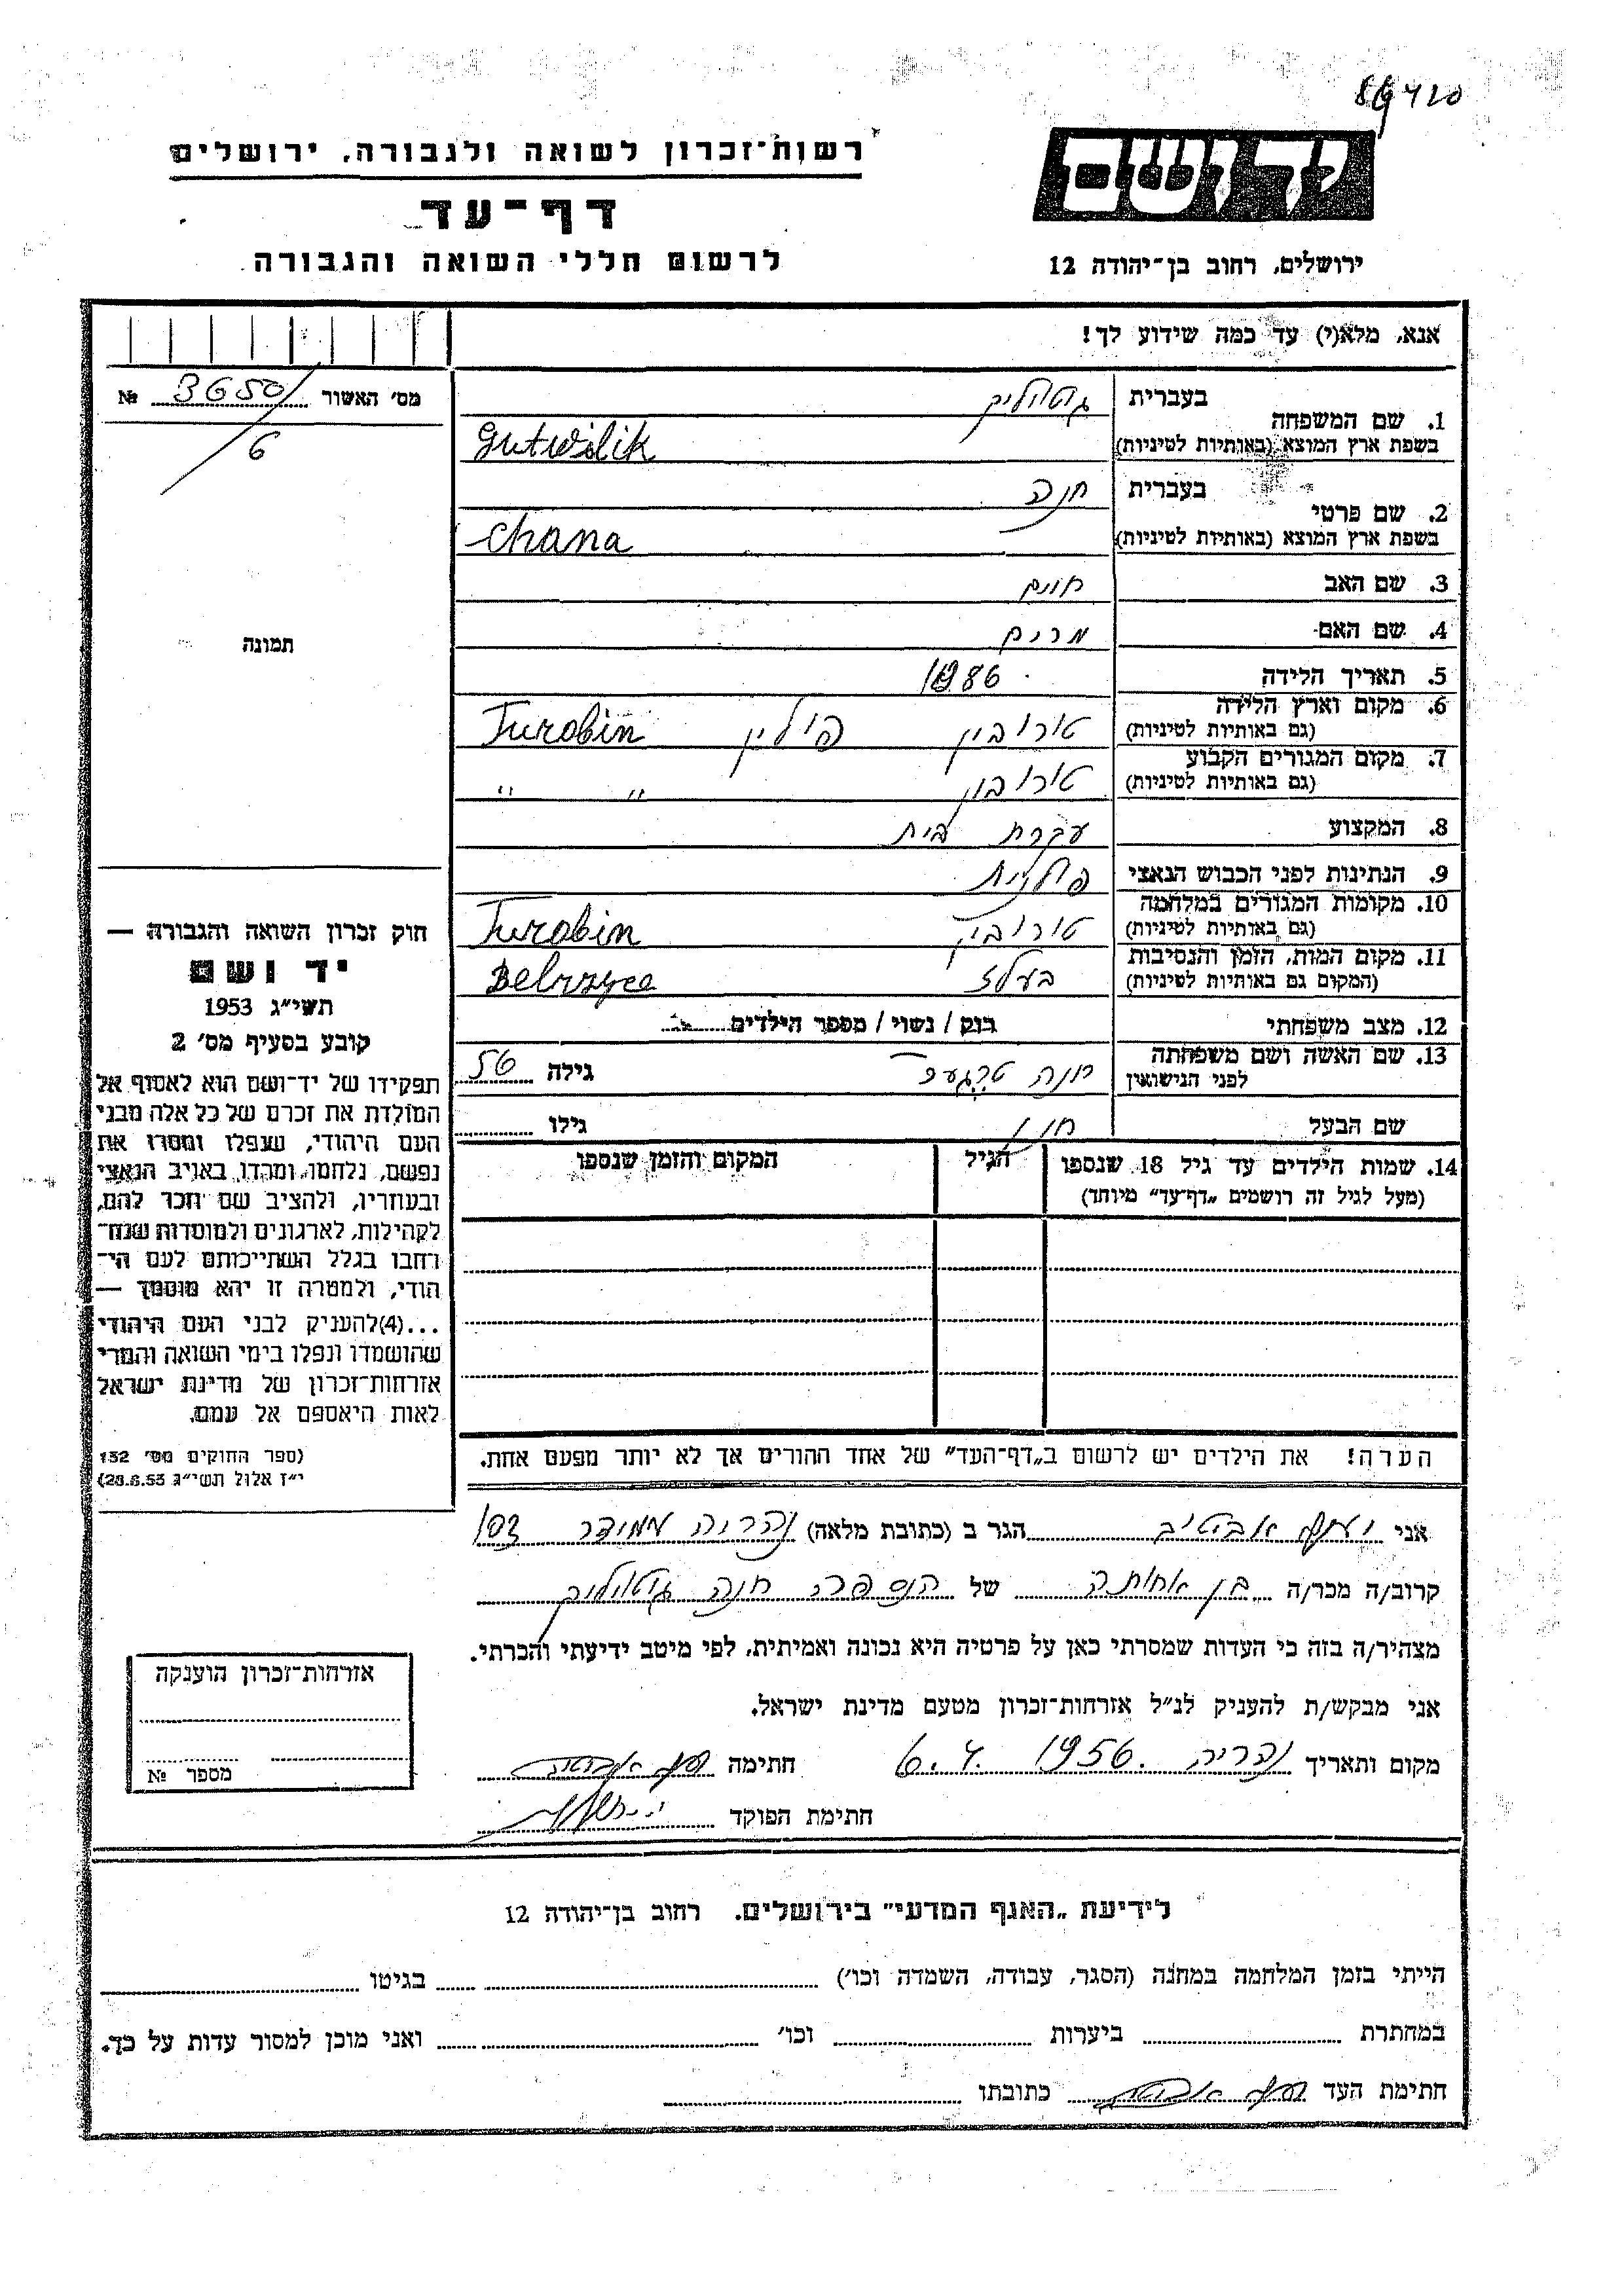 86420
רשות־זכרון לשואה ולגבורה, ירושלים
יד ושם
דף־עד
לרשום חללי השואה והגבורה
ירושלים, רחוב בן־יהודה 12
אנא, מלא(י) עד כמה שידוע לך!
מס׳ האשור 3650/6 №
1. שם המשפחה בעברית
בשפת ארץ המוצא (באותיות לטיניות) Gutwilik
2. שם פרטי בעברית חנה
בשפת ארץ המוצא (באותיות לטיניות) Chana
3. שם האב
4. שם האם מרים
5. תאריך הלידה 1886
6. מקום וארץ הלידה
(גם באותיות לטיניות) טורובין פולין Turobin
7. מקום המגורים הקבוע
(גם באותיות לטיניות) טורובין " "
8. המקצוע עקרת בית
9. הנתינות לפני הכבוש הנאצי פולנית
10. מקומות המגורים במלחמה
(גם באותיות לטיניות) טורובין Turobin
11. מקום המות, הזמן והנסיבות
(המקום גם באותיות לטיניות) בעלז
12. מצב משפחתי רוק / נשוי / מספר הילדים
13. שם האשה ושם משפחתה
לפני הנישואין חנה גילה 56
שם הבעל גילו
14. שמות הילדים עד גיל 18 שנספו הגיל המקום והזמן שנספו
(מעל לגיל זה רושמים „דף־עד״ מיוחד)
הערה! את הילדים יש לרשום ב„דף־העד״ של אחד ההורים אך לא יותר מפעם אחת.
תמונה
חוק זכרון השואה והגבורה —
יד ושם
תשי״ג 1953
קובע בסעיף מס׳ 2
תפקידו של יד־ושם הוא לאסוף אל
המולדת את זכרם של כל אלה מבני
העם היהודי, שנפלו ומסרו את
נפשם, נלחמו ומרדו באויב הנאצי
ובעוזריו, ולהציב שם וזכר להם,
לקהילות, לארגונים ולמוסדות שנח־
רבו בגלל השתייכותם לעם הי־
הודי, ולמטרה זו יהא מוסמך —
...(4)להעניק לבני העם היהודי
שהושמדו ונפלו בימי השואה והמרי
אזרחות־זכרון של מדינת ישראל
לאות היאספם אל עמם.
(ספר החוקים מס׳ 132
י״ז אלול תשי״ג 28.8.53)
אני יוסף הגר ב (כתובת מלאה) נהריה 103
קרוב/ה מכר/ה בן אחותה של הנספה חנה
מצהיר/ה בזה כי העדות שמסרתי כאן על פרטיה היא נכונה ואמיתית, לפי מיטב ידיעתי והכרתי.
אני מבקש/ת להעניק לנ״ל אזרחות־זכרון מטעם מדינת ישראל.
מקום ותאריך נהריה 6.4.1956 חתימה
חתימת הפוקד
אזרחות־זכרון הוענקה
מספר №
לידיעת „האגף המדעי״ בירושלים, רחוב בן־יהודה 12
הייתי בזמן המלחמה במחנה (הסגר, עבודה, השמדה וכו׳) בגיטו
במחתרת ביערות וכו׳ ואני מוכן למסור עדות על כך.
חתימת העד כתובתו